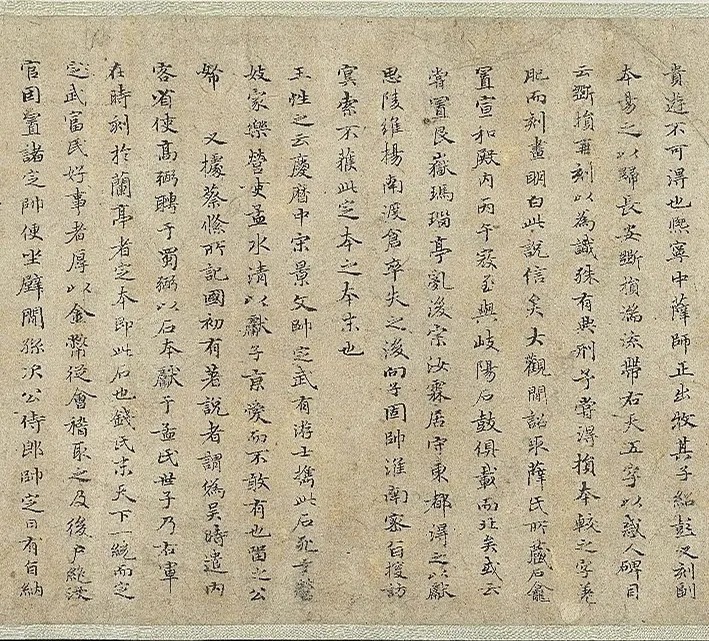 貴遊不可得也熙寧中薛師正出牧其子紹彭又刻副
本易之以歸長安斷損湍流帶右天五字以惑人碑目
云斷損再刻以為識殊有典刑予嘗得損本較之字差
肥而刻畫明白此說信矣大觀間詔取薛氏所藏石龕
置宣和殿內丙午寇至與岐陽石鼓俱載而北矣或云
嘗置艮嶽瑪瑙亭乱後宗汝霖居守東都得之以獻
思陵維揚南渡倉卒失之後向子固帥淮南密旨搜訪
冥索不獲此定本之本末也
王性之云慶曆中宋景文帥定武有游士攜此石死于營
妓家樂營吏孟水清以獻子京愛而不敢有也留之公
帑　又據蔡絛所記國初有著說者謂為吳時遣內
客省使高弼聘于蜀弼以石本獻于孟氏世子乃右軍
在時刻於蘭亭者定本即此石也錢氏末天下一統而定
定武富民好事者厚以金幣從會稽取之及後戶絕沒
官因置諸定帥便坐壁間孫次公侍郎帥定日有旨納